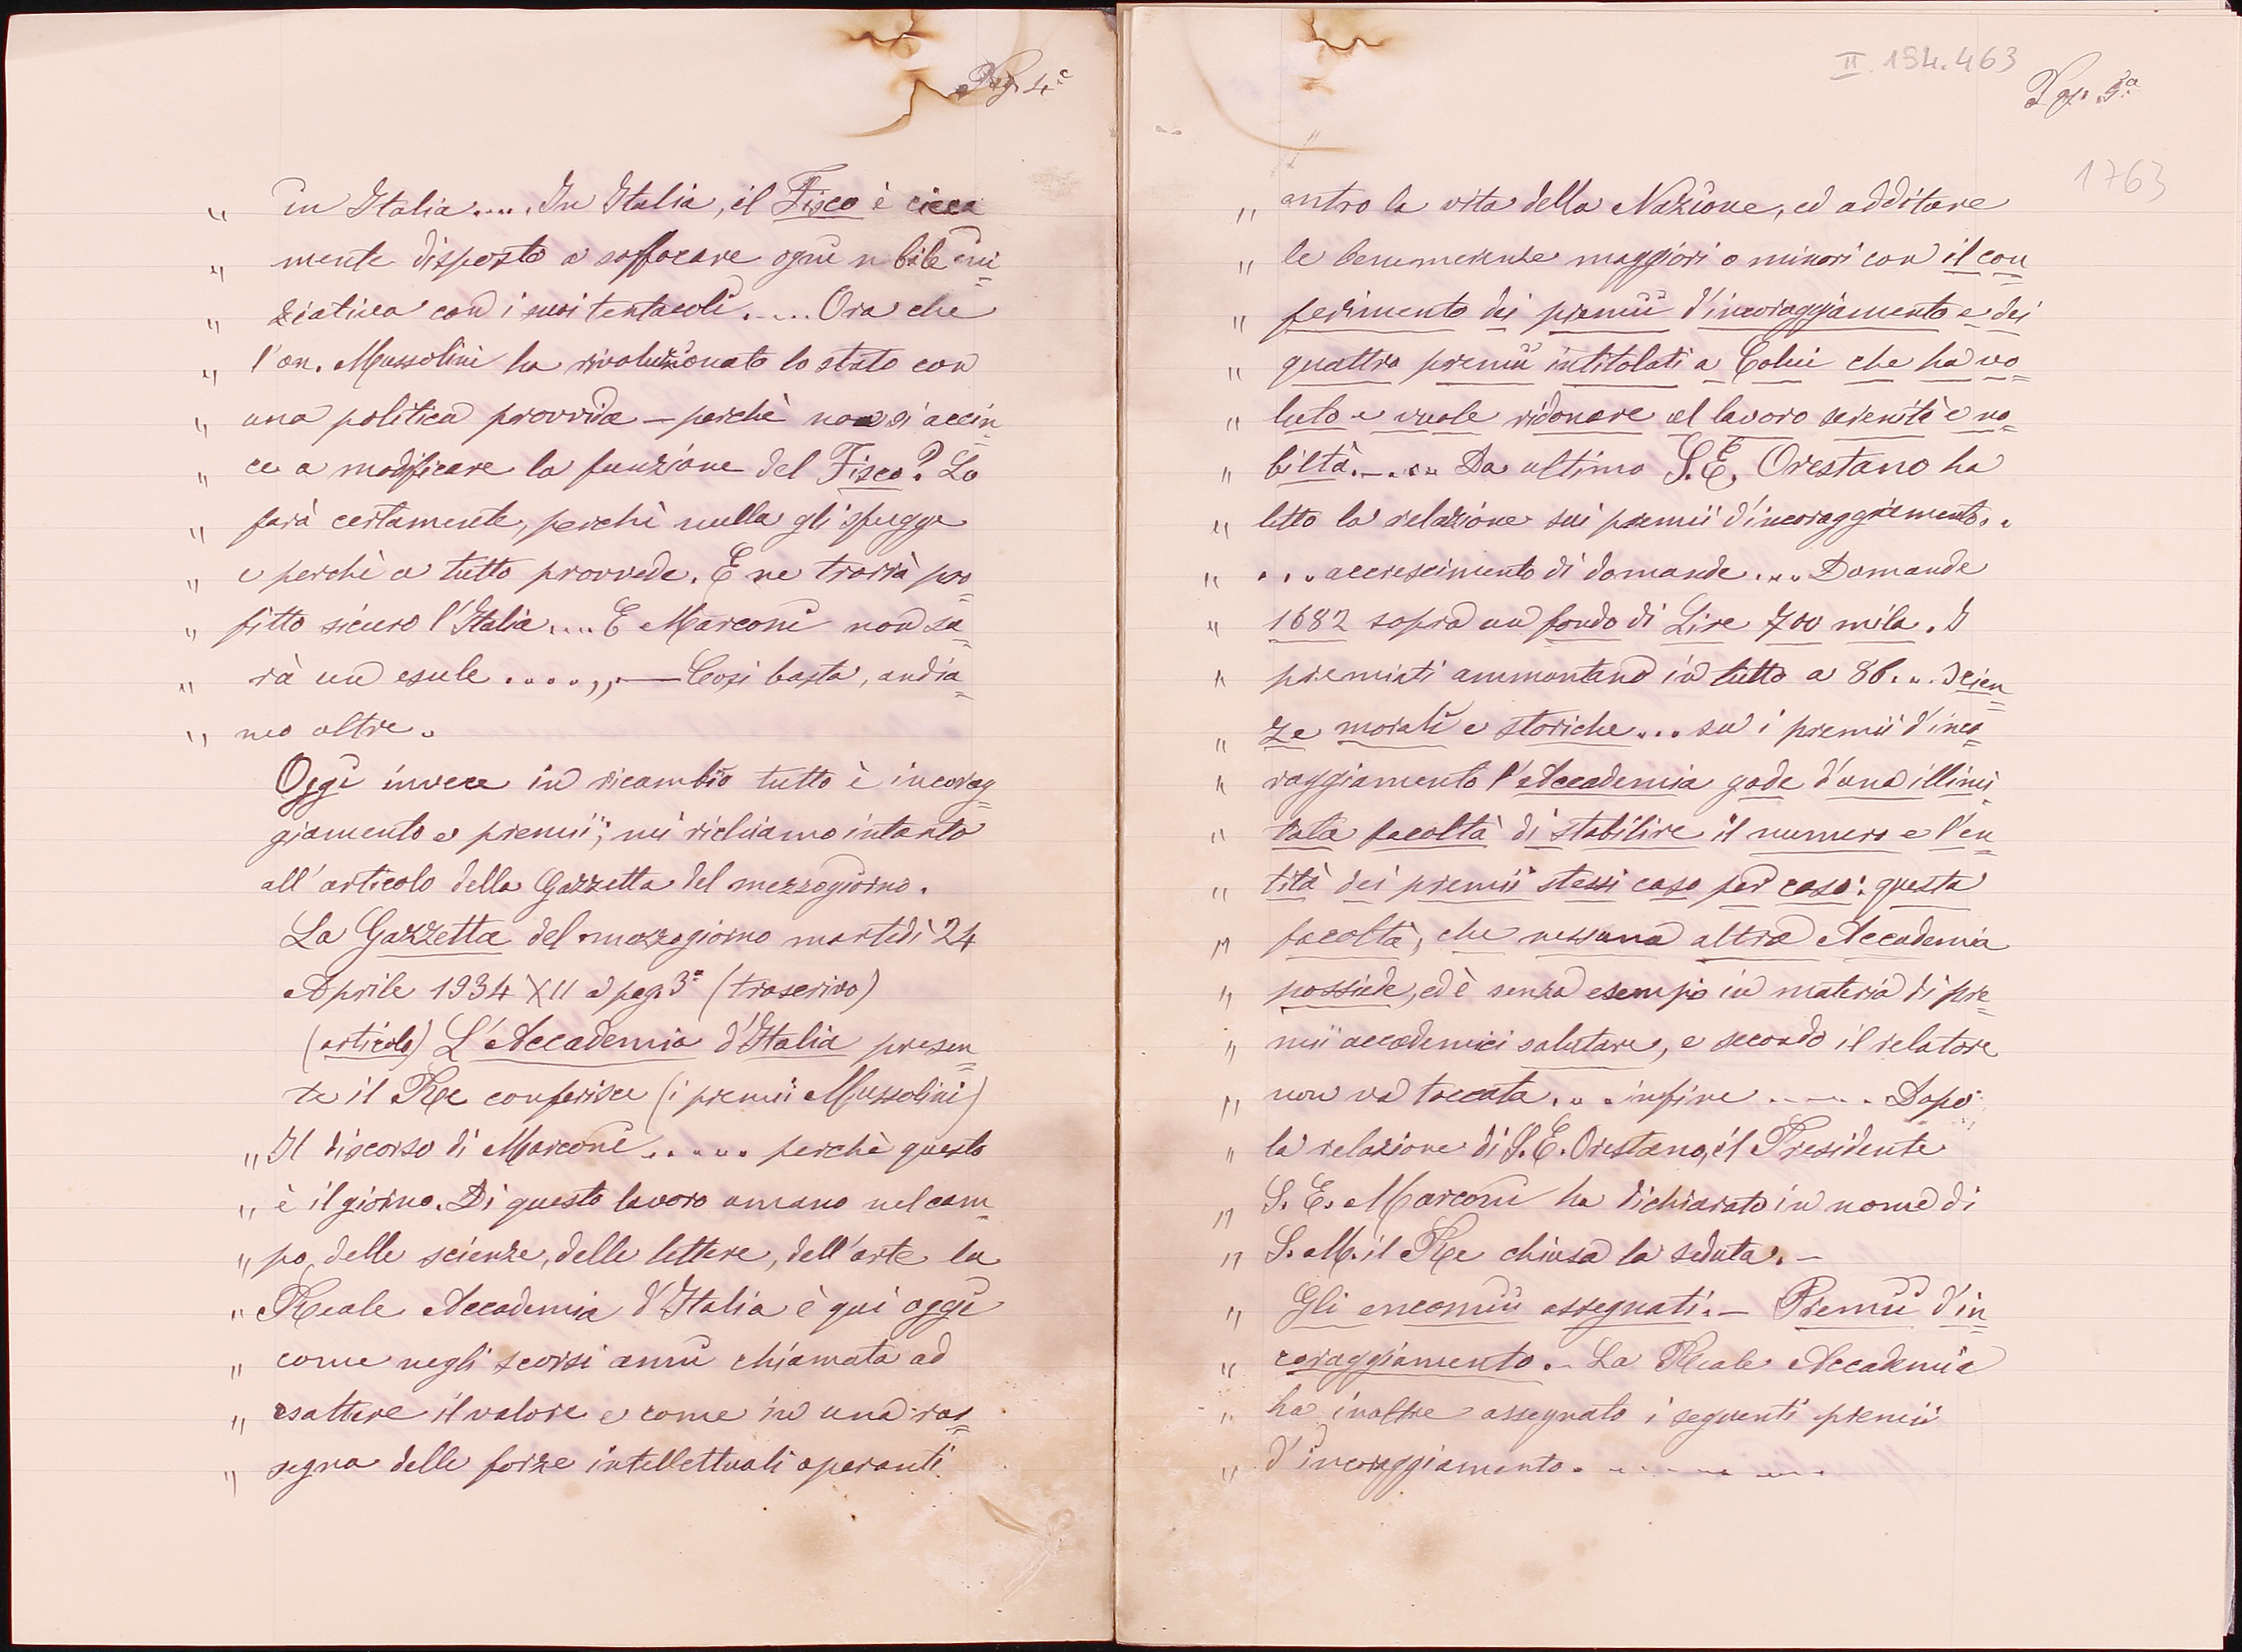 Pag. 4ª
„ in Italia.... In Italia, il Fisco è cieca
„ mente disposto a soffocare ogni nobile ini=
„ ziativa con i suoi tentacoli..... Ora che
„ l'on. Mussolini ha rivoluzionato lo stato con
„ una politica provvida — perchè non si accin=
„ ce a modificare la funzione del Fisco? Lo
„ farà certamente, perchè nulla gli sfugge
„ e perchè a tutto provvede. E ne trarrà pro=
„ fitto sicuro l'Italia.... E Marconi non sa=
„ rà un esule ....,,.— Così basta, andia=
„ mo oltre.
Oggi invece in ricambio tutto è incorag=
giamento e premii; mi richiamo intanto
all'articolo della Gazzetta del mezzogiorno.
La Gazzetta del mezzogiorno martedì 24
Aprile 1934 XII a pag. 3ª (trascrivo)
(articolo) L'Accademia d'Italia presen=
te il Re conferisce (i premii Mussolini)
„ Il discorso di Marconi ...... perchè questo
„ è il giorno. Di questo lavoro umano nel cam=
„ po, delle scienze, delle lettere, dell'arte la
„ Reale Accademia d'Italia è qui oggi
„ come negli scorsi anni chiamata ad
„ esattere il valore e come in una ras=
„ segna delle forze intellettuali operanti
II 194.463
Pag. 5ª
1763
„ entro la vita della Nazione, ed additare
„ le benemerenze maggiori o minori con il con
„ ferimento dei premii d'incoraggiamento e dei
„ quattro premii intitolati a Colui che ha vo=
„ luto e vuole ridonare al lavoro serenità e no=
„ biltà.—... Da ultimo S.E. Orestano ha
„ letto la relazione sui premii d'incoraggiamento..
„ ... accrescimento di domande.... Domande
„ 1682 sopra un fondo di Lire 700 mila. I
„ premiati ammontano in tutto a 86... Scien=
„ ze morali e storiche... su i premii d'inco=
„ raggiamento l'Accademia gode d'una illimi=
„ tata facoltà di stabilire il numero e l'en=
„ tità dei premii stessi caso per caso: questa
„ facoltà, che nessuna altra Accademia
„ possiede, ed è senza esempio in materia di pre=
„ mii accademici salutare, e secondo il relatore
„ non va toccata... infine ...... Dopo
„ la relazione di S.E. Orestano, il Presidente
„ S. E. Marconi ha dichiarato in nome di
„ S. M. il Re chiusa la seduta.—
„ Gli encomii assegnati.— Premii d'in=
„ coraggiamento.— La Reale Accademia
„ ha inoltre assegnato i seguenti premii
„ d'incoraggiamento. ........